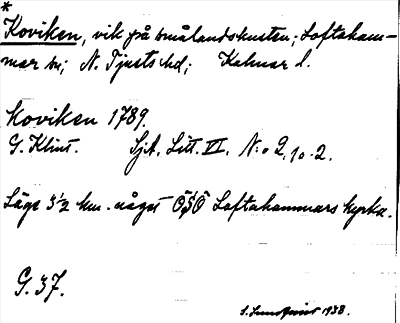 *
Koviken, vik på Smålandskusten; Loftaham-
mar sn; N. Tjusts hd; Kalmar l.
Koviken 1789.
G. Klint. Sjk. Litt. VI. N:o 2, 10-2.
Läge 3 1/2 km. något ÖSÖ Loftahammars kyrka.
G. 37.
S. Lundqvist 1938.